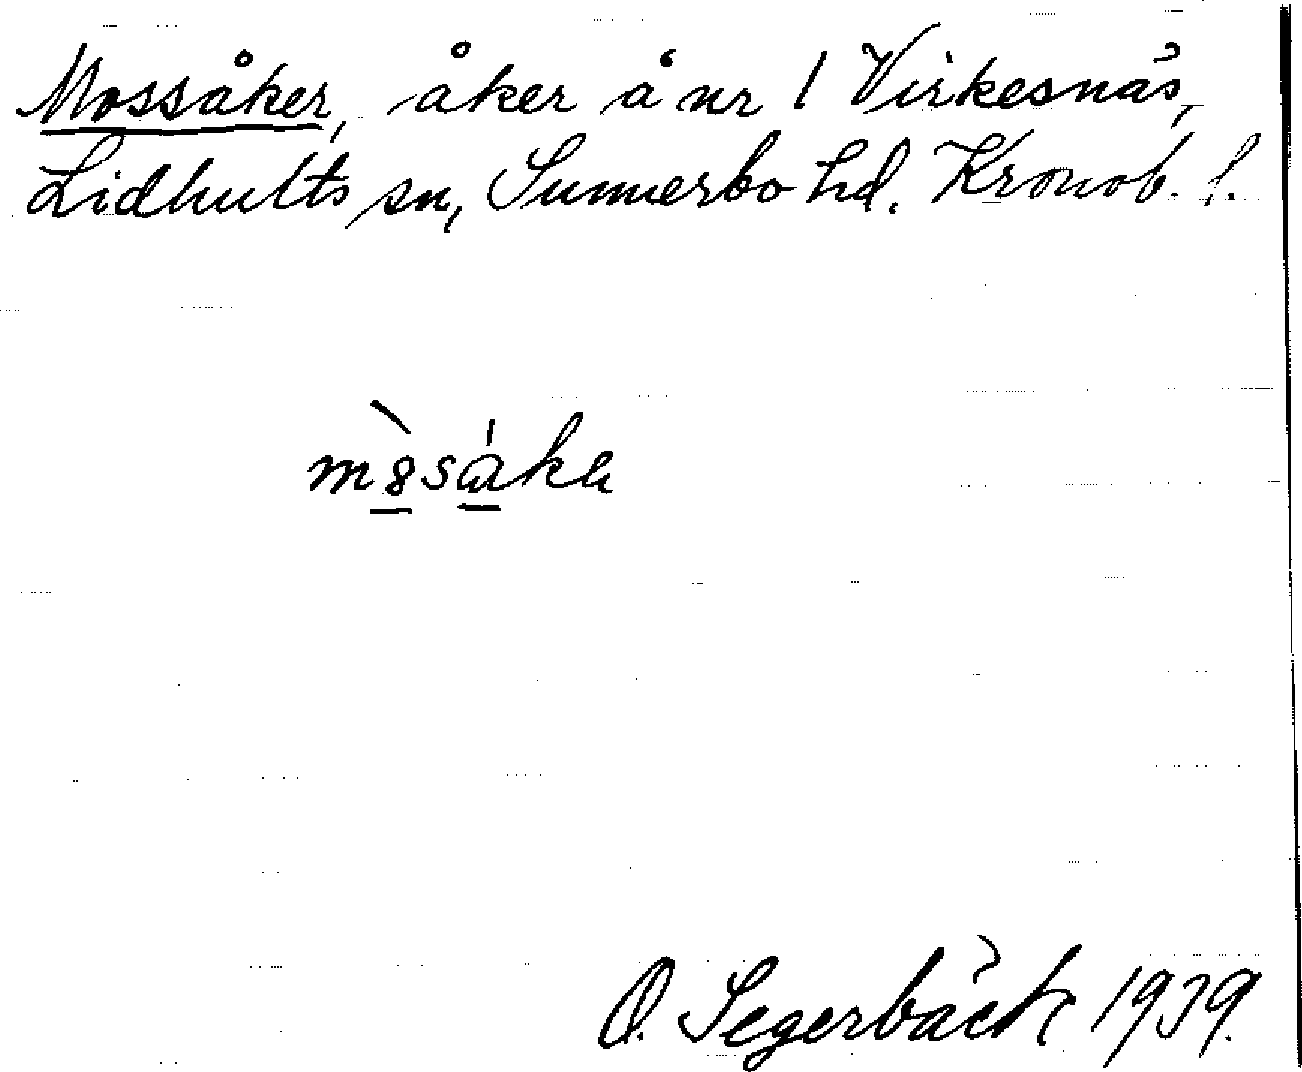 Mossåker, åker å nr 1 Virkesnäs,
Lidhults sn, Sunnerbo hd. Kronob. l.
O. Segerbäck 1939.